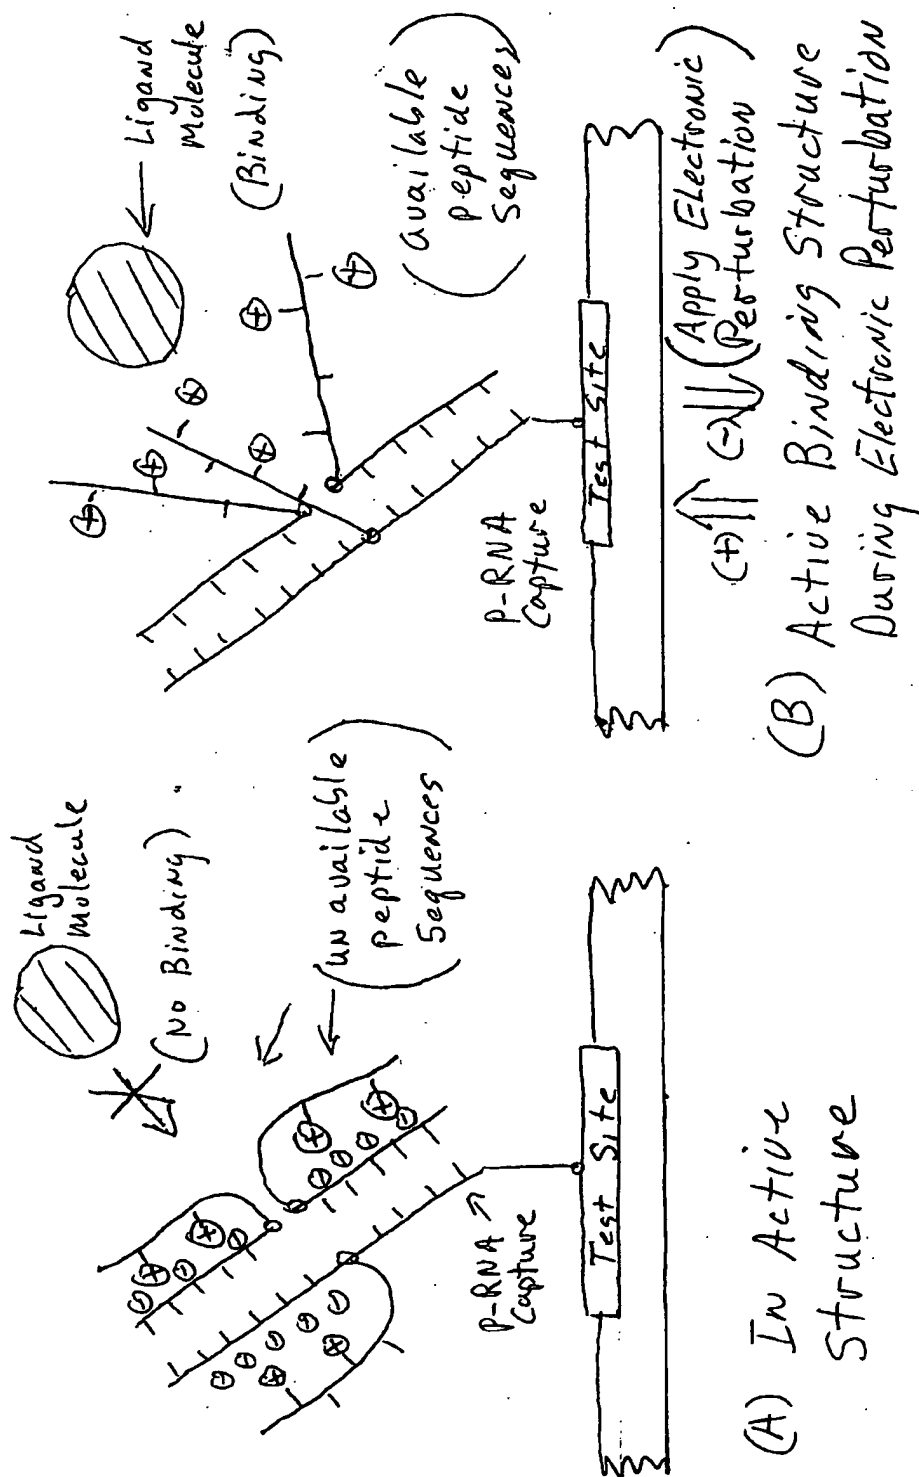 Ligand
Molecule
(No Binding)
(un available
peptide
Sequences)
P-RNA
Capture
Test Site
(A) In Active
Structure
Ligand
Molecule
(Binding)
(available
peptide
Sequences)
P-RNA
Capture
Test Site
(+) (-) (Apply Electronic
Perturbation)
(B) Active Binding Structure
During Electronic Perturbation